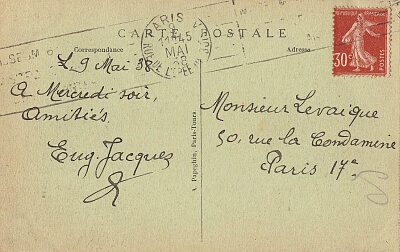 CARTE POSTALE
Correspondance
Adresse
PARIS
MAI
RÉPUBLIQUE FRANÇAISE
30c
POSTES
L. 9 Mai 38
A Mercredi soir,
Amitiés.
Eug. Jacques
A. Papeghin, Paris-Tours
Monsieur Levaique
50, rue la Condamine
Paris 17e